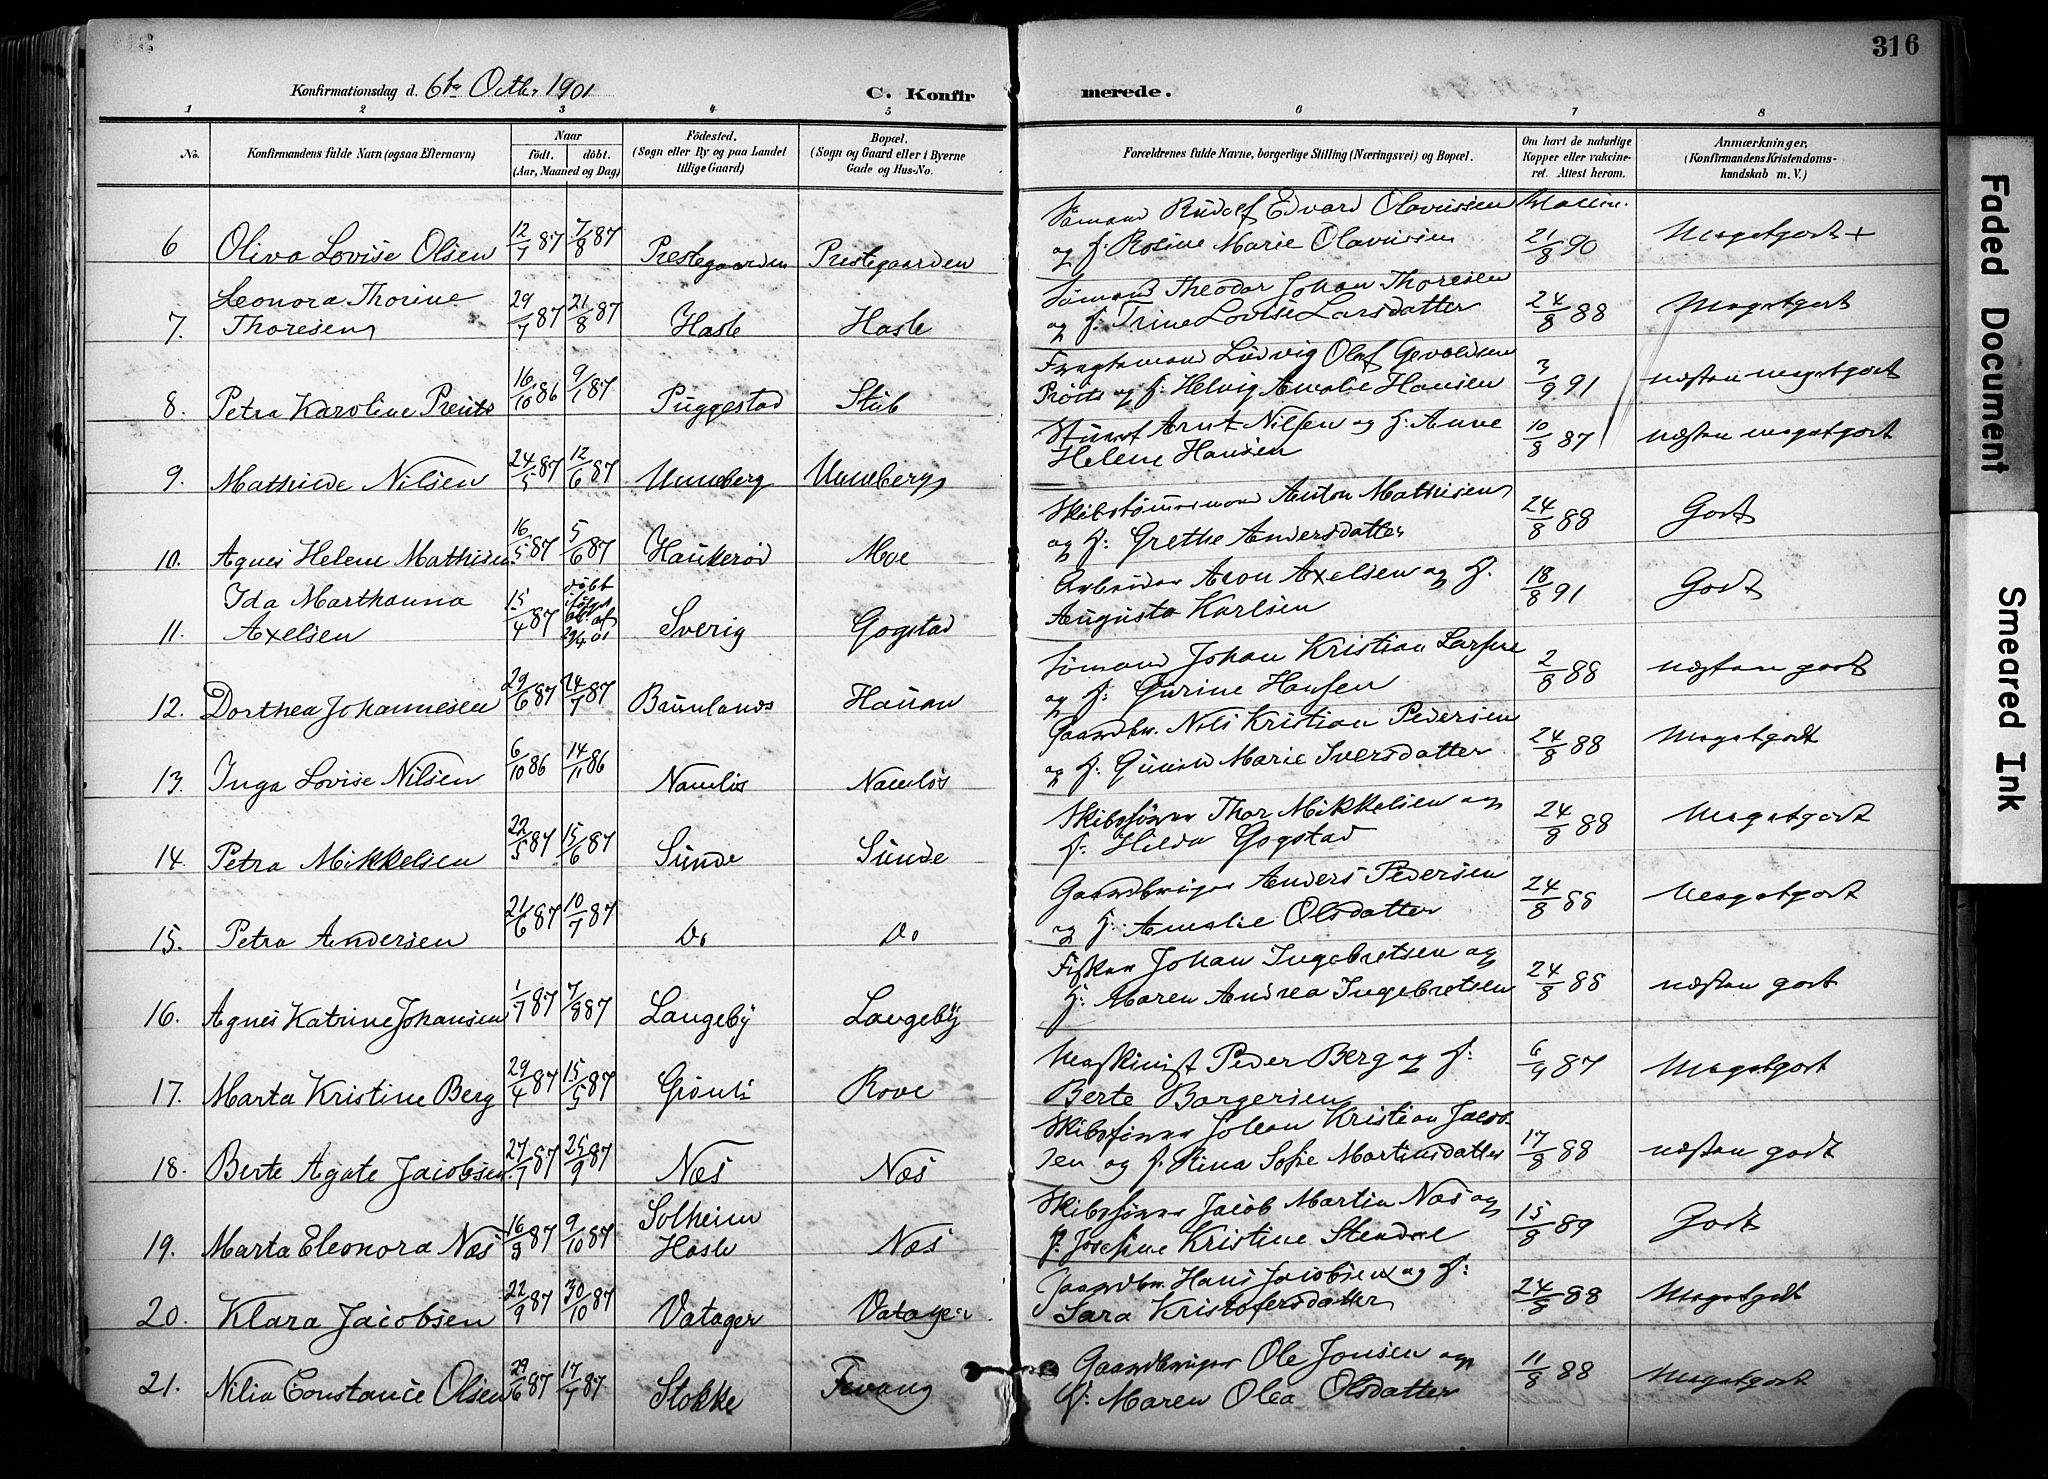 316
Konfirmationsdag d. 6te Octbr 1901 C. Konfirmerede.
1 2 3 4 5 6 7 8
No. Konfirmandens fulde Navn (ogsaa Efternavn) Naar født. døbt. (Aar, Maaned og Dag) Fødested. (Sogn eller By og paa Landet tillige Gaard) Bopæl. (Sogn og Gaard eller i Byerne Gade og Hus-No. Forældrenes fulde Navne, borgerlige Stilling (Næringsvei) og Bopæl. Om havt de naturlige Kopper eller vaccineret. Attest herom. Anmærkninger. (Konfirmandens Kristendomskundskab m. V.)
6 Oliva Lovise Olsen 12/7 87 7/8 87 Prestegaarden Prestegaarden Sømand Rudolf Edvard Olavussen og H: Rosine Marie Olavussen Vaccin. 21/8 90 Megetgodt +
7. Leonora Thorine Thoresen 29/7 87 21/8 87 Hasle Hasle Sømand Theodor Johan Thoresen og H: Trine Lovise Larsdatter 24/8 88 Megetgodt
8. Petra Karoline 16/10 86 9/1 87 Puggestad Stub Fragtemand Ludvig Olaf og H: Helvig Amalie Hansen 3/9 91 næsten megetgodt
9. Mathilde Nilsen 24/5 87 12/6 87 Unneberg Unneberg Stuert Arnt Nilsen og H: Anne Helene Hansen 10/8 87 næsten megetgodt
10. Agnes Helene Mathisen 16/5 87 5/6 87 Haukerød Moe Skibstømmermand Anton Mathisen og H: Grethe Andersdatter 24/8 88 Godt
11. Ida Marthanna Axelsen 15/4 87 døbt ifølge att. af 29/4 01 Sverig Gogstad Arbeider Aron Axelsen og H. Augusta Karlsen 18/8 91 Godt
12. Dorthea Johannesen 29/6 87 24/7 87 Brunlanes Hauan Sømand Johan Kristian Larsen og H: Gurine Hansen 2/8 88 næsten godt
13. Inga Lovise Nilsen 6/10 86 14/11 86 Namløs Namløs Gaardbr. Nils Kristian Pedersen og H: Marie Iversdatter 24/8 88 Megetgodt
14. Petra Mikkelsen 22/5 87 15/6 87 Sunde Sunde Skibsfører Thor Mikkelsen og H: Hilda Gogstad 24/8 88 Megetgodt
15. Petra Andersen 21/6 87 10/7 87 Do Do Gaardbruger Anders Pedersen og H: Amalie Olsdatter 24/8 88 Megetgodt
16. Agnes Katrine Johansen 1/7 87 7/8 87 Langeby Langeby Fisker Johan Ingebretsen og H: Maren Andrea Ingebretsen 24/8 88 næsten godt
17. Marta Kristine Berg 29/4 87 15/5 87 Grønli Rove Maskinist Peder Berg og H: Berte Borgersen 6/9 87 Megetgodt
18. Berte Agate Jacobsen 27/7 87 25/9 87 Næs Næs Skibsfører Johan Kristian Jacobsen og H. Rina Sofie Martinsdatter 17/8 88 næsten godt
19. Marta Eleonora Næs 16/9 87 9/10 87 Solheim Hasle Næs Skibsfører Jacob Martin Næs og H: Josefine Kristine 15/8 89 Godt
20. Klara Jacobsen 22/9 87 30/10 87 Vatager Vatager Gaardbr. Hans Jacobsen og H: Sara Kristofersdatter 24/8 88 Megetgodt
21. Nilia Constance Olsen 29/6 87 17/7 87 Stokke Fevang Gaardbruger Ole Jonsen og H: Maren Olea Olsdatter 11/8 88 Megetgodt
Faded Document
Smeared Ink